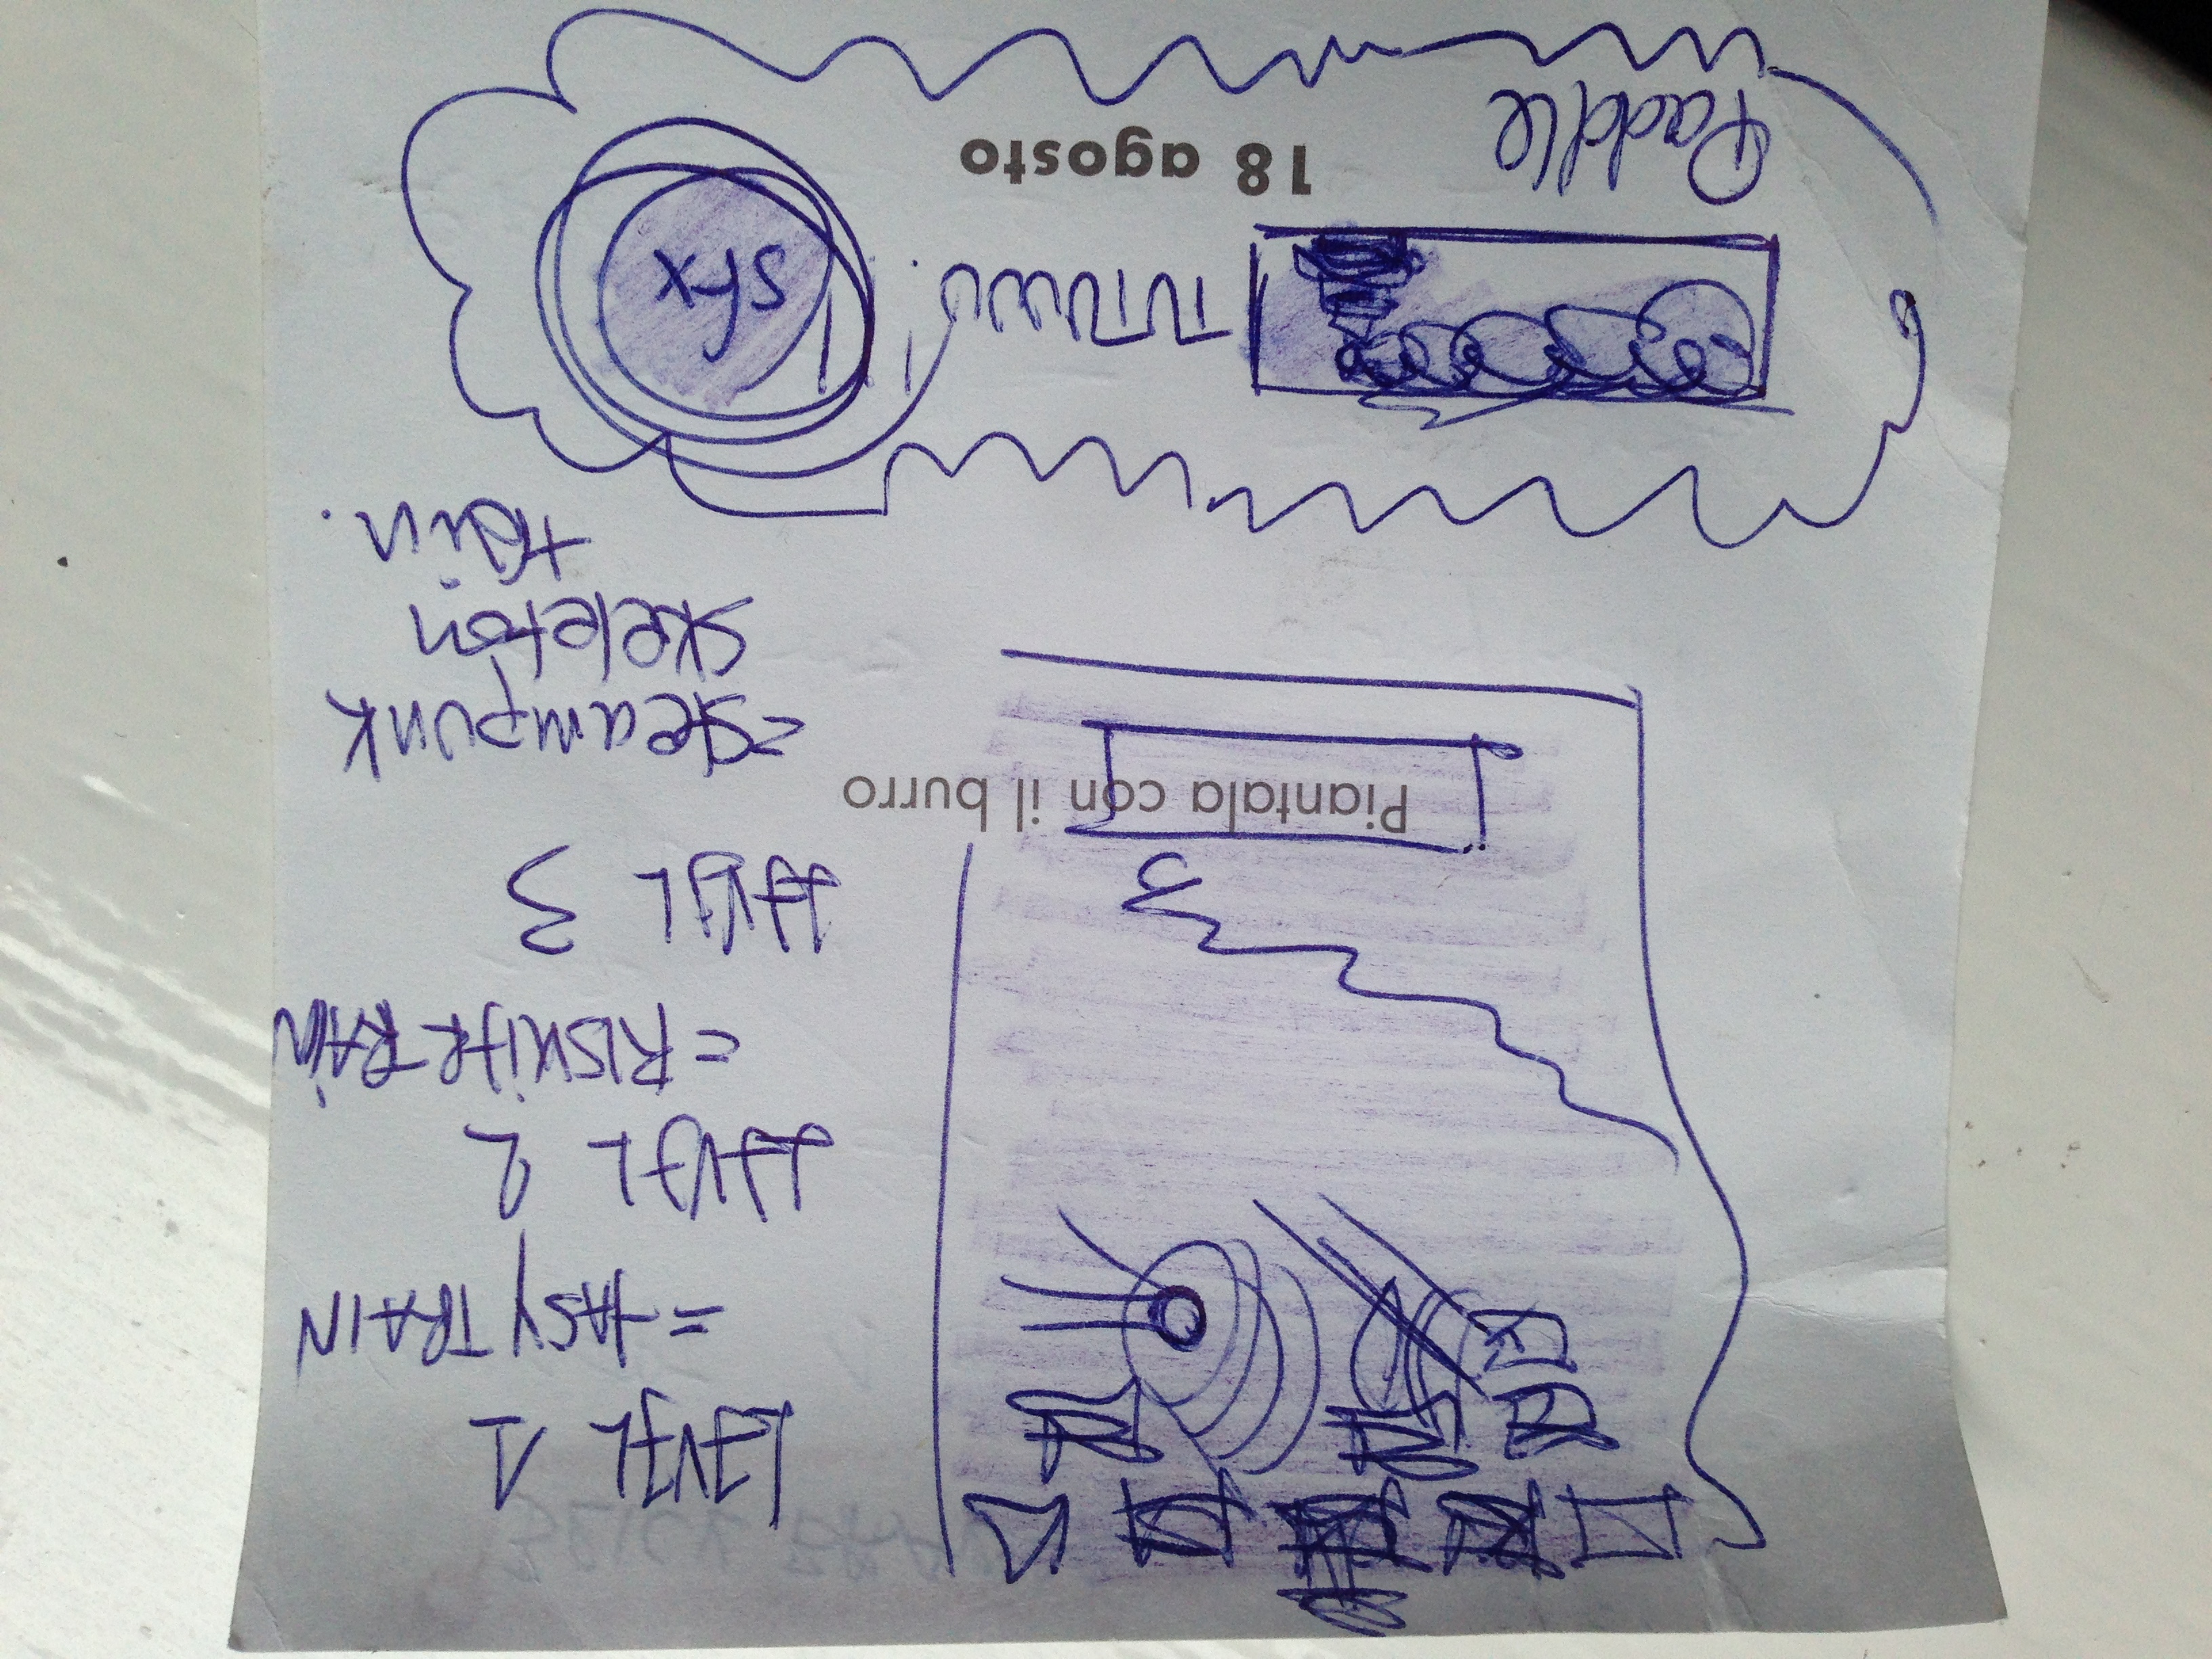 LEVEL 1
= EASY TRAIN
LEVEL 2
= RISKIER TRAIN
LEVEL 3
Piantala con il burro
=steampunk
skeleton
train.
sfx
18 agosto
Paddle